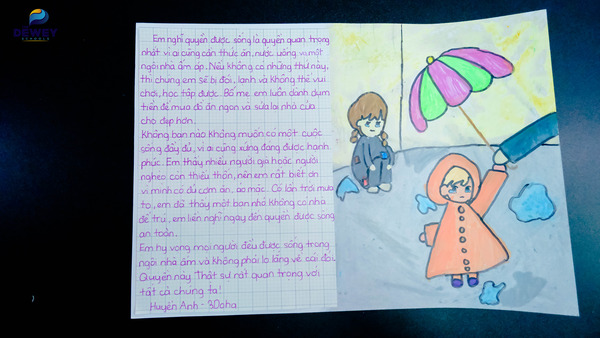 DEWEY
SCHOOLS
Em nghĩ quyền được sống là quyền quan trọng
nhất vì ai cũng cần thức ăn, nước uống và một
ngôi nhà ấm áp. Nếu không có những thứ này,
thì chúng em sẽ bị đói, lạnh và không thể vui
chơi, học tập được. Bố mẹ em luôn dành dụm
tiền để mua đồ ăn ngon và sửa lại nhà cửa
cho đẹp hơn.
Không bạn nào không muốn có một cuộc
sống đầy đủ, vì ai cũng xứng đáng được hạnh
phúc. Em thấy nhiều người già hoặc người
nghèo còn thiếu thốn, nên em rất biết ơn
vì mình có đủ cơm ăn, áo mặc. Có lần trời mưa
to, em đã thấy một bạn nhỏ không có nhà
để trú, em liền nghĩ ngay đến quyền được sống
an toàn.
Em hy vọng mọi người đều được sống trong
ngôi nhà ấm và không phải lo lắng về cái đói.
Quyền này thật sự rất quan trọng với
tất cả chúng ta!
Huyền Anh - 3Oaha